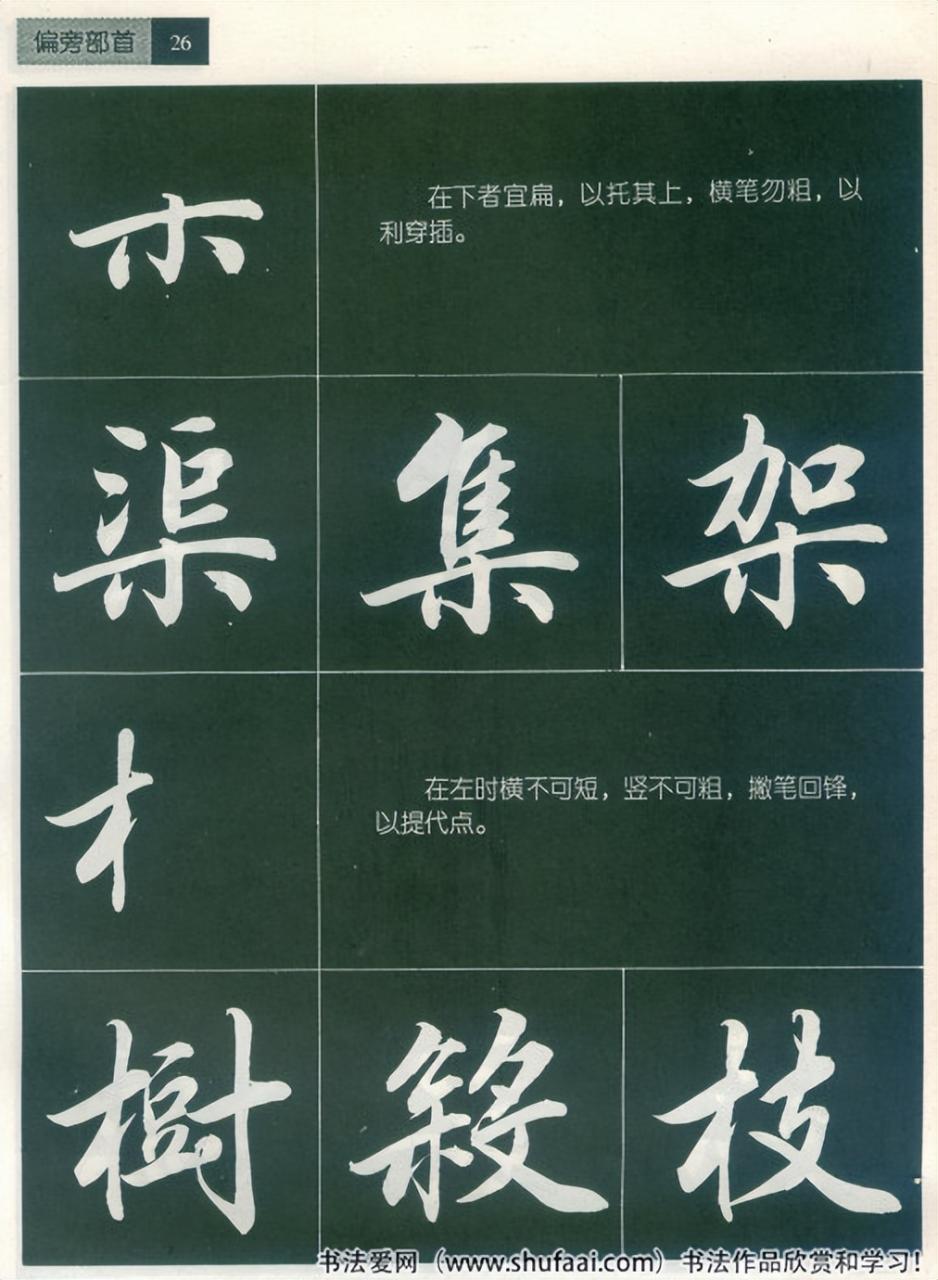 偏旁部首 26
木
在下者宜扁，以托其上，横笔勿粗，以
利穿插。
渠 集 架
木
在左时横不可短，竖不可粗，撇笔回锋，
以提代点。
樹 殺 枝
书法爱网（www.shufaai.com）书法作品欣赏和学习！